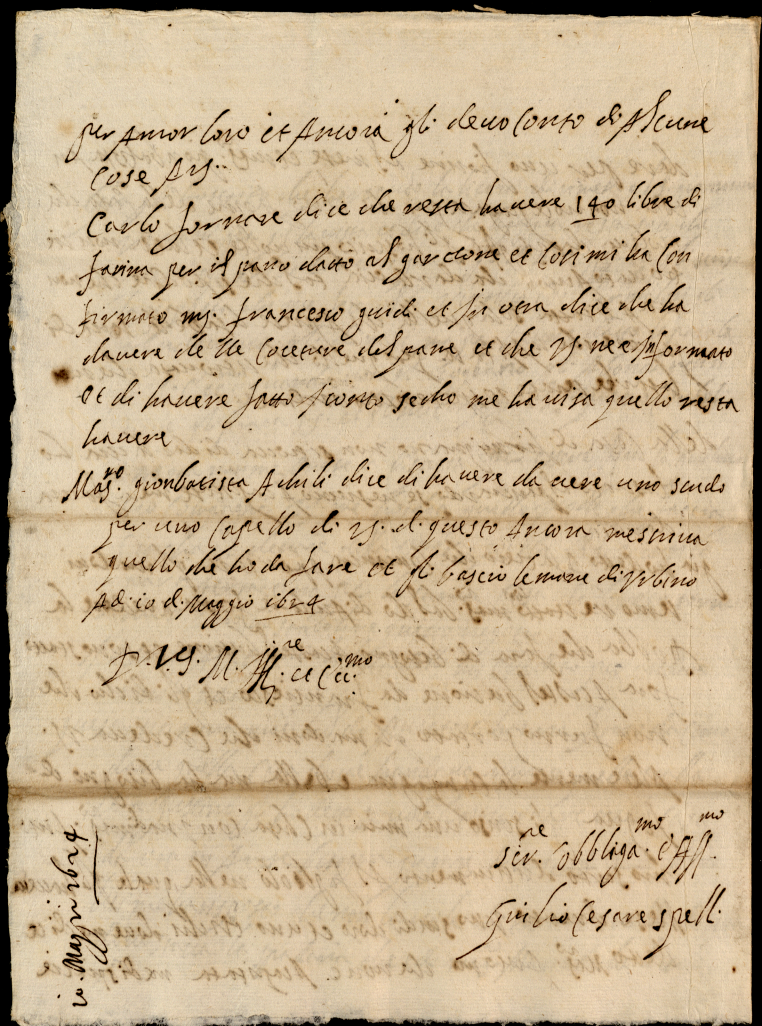 per Amor loro et Ancora gli devo Conto di Alcune
Cose
Carlo fornare dice che resta havere 140 libre di
farina per il pane datto al garzone et Cosi mi ha Con
firmato mſ. francesco guidi et in otra dice che ha
davere delle Coceture del pane et che VS. ne e informato
et di havere fatto sconto secho me havisa quello resta
havere
Mag.ro gionbatista Achili dice di havere da vere uno scudo
per uno Capello di VS. di questo Ancora mescriva
quello che ho da fare et gli bascio le mane di Vrbino
Ad: io di Maggio 1624
D. V.S. M. Ill.re et Ecc.mo
Ser.re obbliga.mo e Aff.mo
Giulio Cesare spelli
io. Maggi 1624